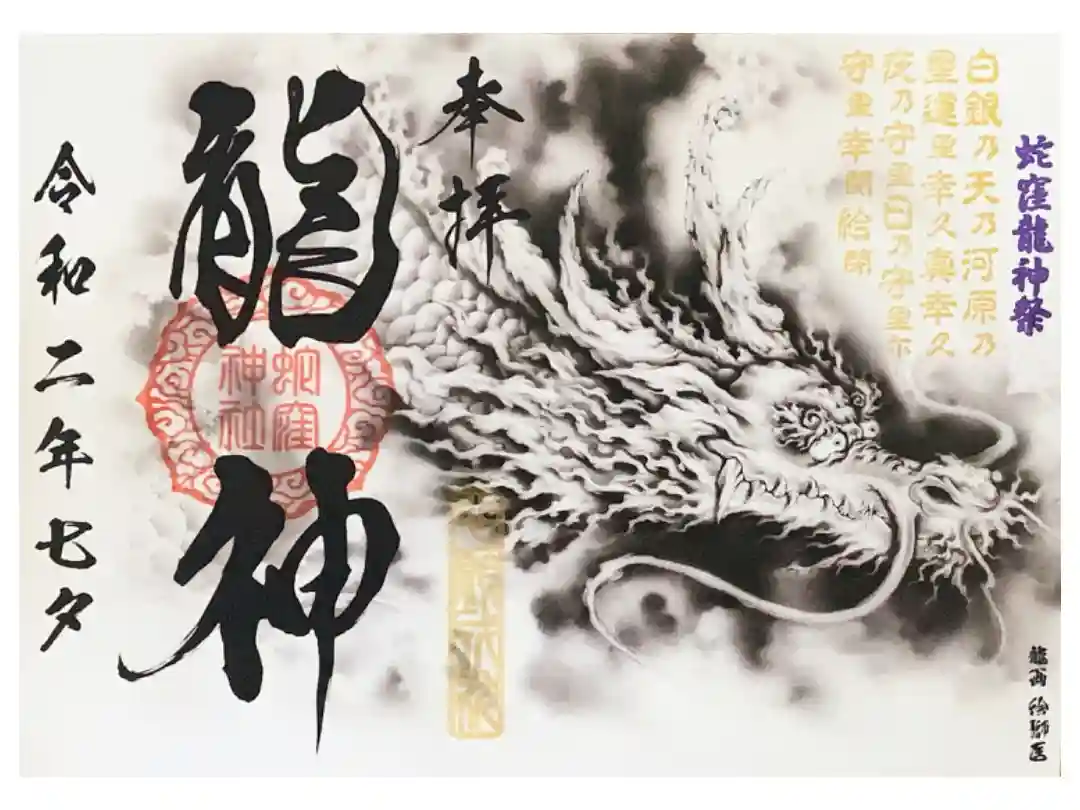 蛇窪龍神祭
白銀乃天乃河原乃
運里幸久真幸久
夜乃守里日乃守里尓
守里幸閇給閇
奉拝
龍神
蛇窪
神社
令和二年七夕
龍画